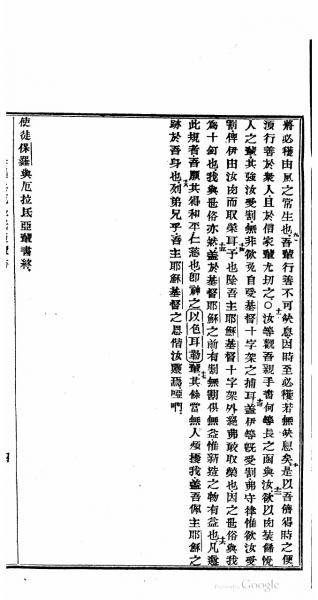 將必穫由風之常生也吾輩行善不可缺息因時至必穫若無缺息矣是以吾儕得時之便
須行善於衆人且於信家輩尤切之○汝等觀吾親手書何等長之函與汝欲以肉裝飾悅
人之輩其強汝受割無非欲免自受基督十字架之捕耳蓋伊等旣受割弗守律惟欲汝受
割俾伊由汝肉而取榮耳予也除吾主耶穌基督十字架外絕弗敢取榮也因之世俗與我
爲十釘也我與世俗亦然蓋於基督耶穌之前有割無割俱無益惟新造之物有益也凡遵
此規者吾願其得和平仁慈也卽神之以色耳勒輩其餘當無人煩擾我蓋吾佩主耶穌之
跡於吾身也列弟兄乎吾主耶穌基督之恩偕汝靈焉啞們
使徒保羅與厄拉氐亞輩書終
Google